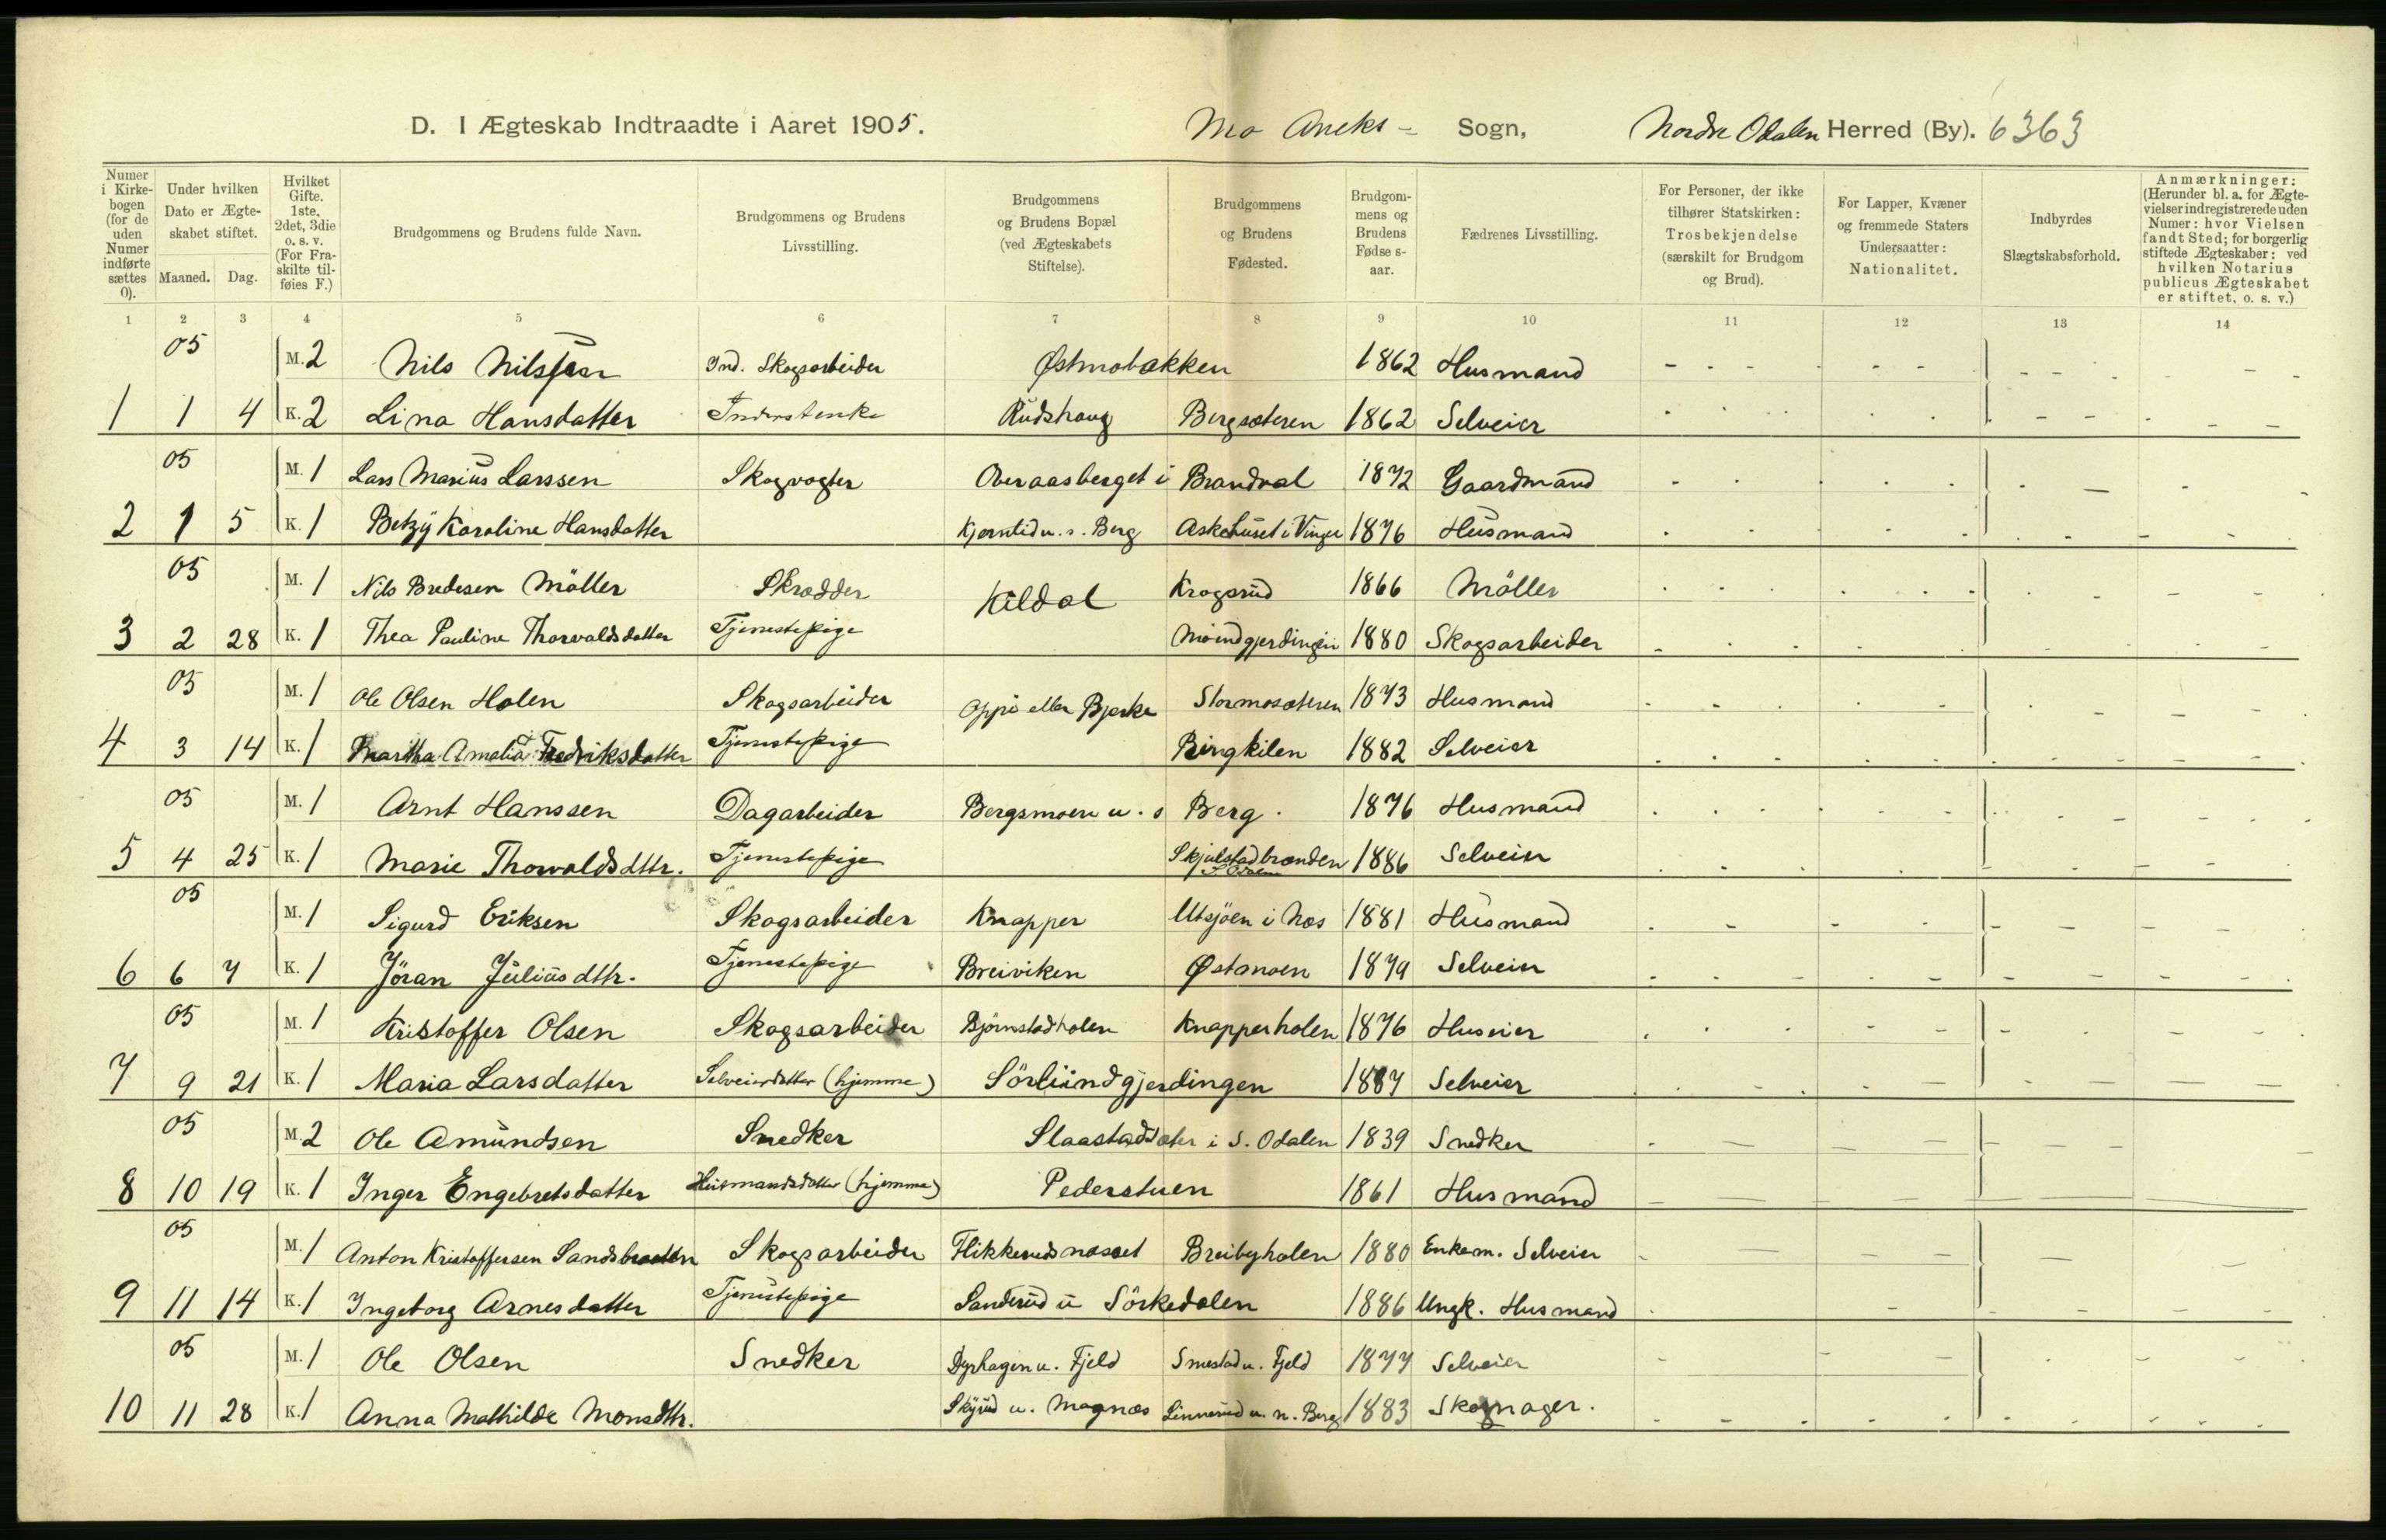 D. I Ægteskab Indtraadte i Aaret 1905. Mo Aneks- Sogn, Nordre Odalen Herred (By). 6363
Numer i Kirkebogen (for de uden Numer indførte sættes 0).
Under hvilken Dato er Ægteskabet stiftet.
Maaned. Dag.
Hvilket Gifte. 1ste, 2det, 3die o. s. v. (For Fraskilte tilføies F.)
Brudgommens og Brudens fulde Navn.
Brudgommens og Brudens Livsstilling.
Brudgommens og Brudens Bopæl (ved Ægteskabets Stiftelse).
Brudgommens og Brudens Fødested.
Brudgommens og Brudens Fødse s-aar.
Fædrenes Livsstilling.
For Personer, der ikke tilhører Statskirken: Trosbekjendelse (særskilt for Brudgom og Brud).
For Lapper, Kvæner og fremmede Staters Undersaatter: Nationalitet.
Indbyrdes Slægtskabsforhold.
Anmærkninger: (Herunder bl. a. for Ægtevielser indregistrerede uden Numer: hvor Vielsen fandt Sted; for borgerlig stiftede Ægteskaber: ved hvilken Notarius publicus Ægteskabet er stiftet, o. s. v.)
1 2 3 4 5 6 7 8 9 10 11 12 13 14
05 M. 2 Nils Nilssen Ind. Skogsarbeider Østmobakken 1862 Husmand
1 1 4 K. 2 Lina Hansdatter Inderstenke Rudshaug Bergsæteren 1862 Selveier
05 M. 1 Lars Marius Larssen Skogvogter Overaasberget i Brandval 1872 Gaardmand
2 1 5 K. 1 Betzy Karoline Hansdatter Kjerntid u. s. Berg Askehuset i Vinger 1876 Husmand
05 M. 1 Nils Bredesen Möller Skrædder Kildal Krogsrud 1866 Möller
3 2 28 K. 1 Thea Pauline Thorvaldsdatter Tjenestepige Moendgjerdingen 1880 Skogsarbeider
05 M. 1 Ole Olsen Holen Skogsarbeider Oppi eller Bjerke Stormosæteren 1873 Husmand
4 3 14 K. 1 Martha Amalia Fredriksdatter Tjenestepige Ringkilen 1882 Selveier
05 M. 1 Arnt Hanssen Dagarbeider Bergsmoen u. s Berg. 1876 Husmand
5 4 25 K. 1 Marie Thorvaldsdttr. Tjenestepige Skjulstadbrænden S. Odalen 1886 Selveier
05 M. 1 Sigurd Eriksen Skogsarbeider Knapper Utsjöen i Nes 1881 Husmand
6 6 7 K. 1 Jöran Juliusdttr. Tjenestepige Breiviken Østmoen 1879 Selveier
05 M. 1 Kristoffer Olsen Skogsarbeider Björnstadholen Knapperholen 1876 Huseier
7 9 21 K. 1 Maria Larsdatter Selveierdatter (hjemme) Sörliundgjerdingen 1887 Selveier
05 M. 2 Ole Amundsen Snedker Slaastadsæter i S. Odalen 1839 Snedker
8 10 19 K. 1 Inger Engebretsdatter Husmandsdatter (hjemme) Pederstuen 1861 Husmand
05 M. 1 Anton Kristoffersen Sandsbraaten Skogsarbeider Flikkerudsnæsset Breibyholen 1880 Enkem. Selveier
9 11 14 K. 1 Ingeborg Arnesdatter Tjenestepige Sanderud u Sörkedalen 1886 Ungk. Husmand
05 M. 1 Ole Olsen Snedker Dyrhagen u. Fjeld Smestad u. Fjeld 1877 Selveier
10 11 28 K. 1 Anna Mathilde Monsdttr. Skyrud u. Magnæs Linnerud u. n. Berg 1883 Skomager.